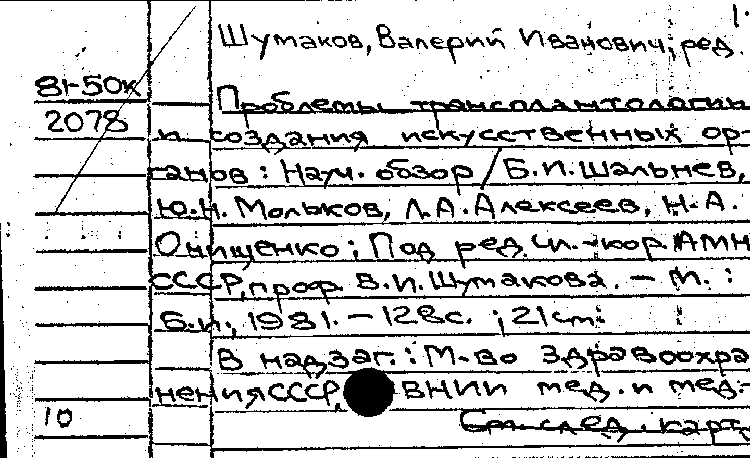 1.
Шумаков, Валерий Иванович, ред.
81-50к
Проблемы трансплантологии
2078
и создания искусственных ор-
ганов: Науч. обзор / Б.И. Шальнев,
Ю.Н. Мольков, Л.А. Алексеев, Н.А.
Онищенко; Под ред. чл.-кор. АМН
СССР, проф. В.И. Шумакова. - М. :
Б.и., 1981. - 128с. ; 21 см.
В надзаг.: М-во здравоохра
нения СССР, ВНИИ мед. и мед.-
10
См. след. карт.